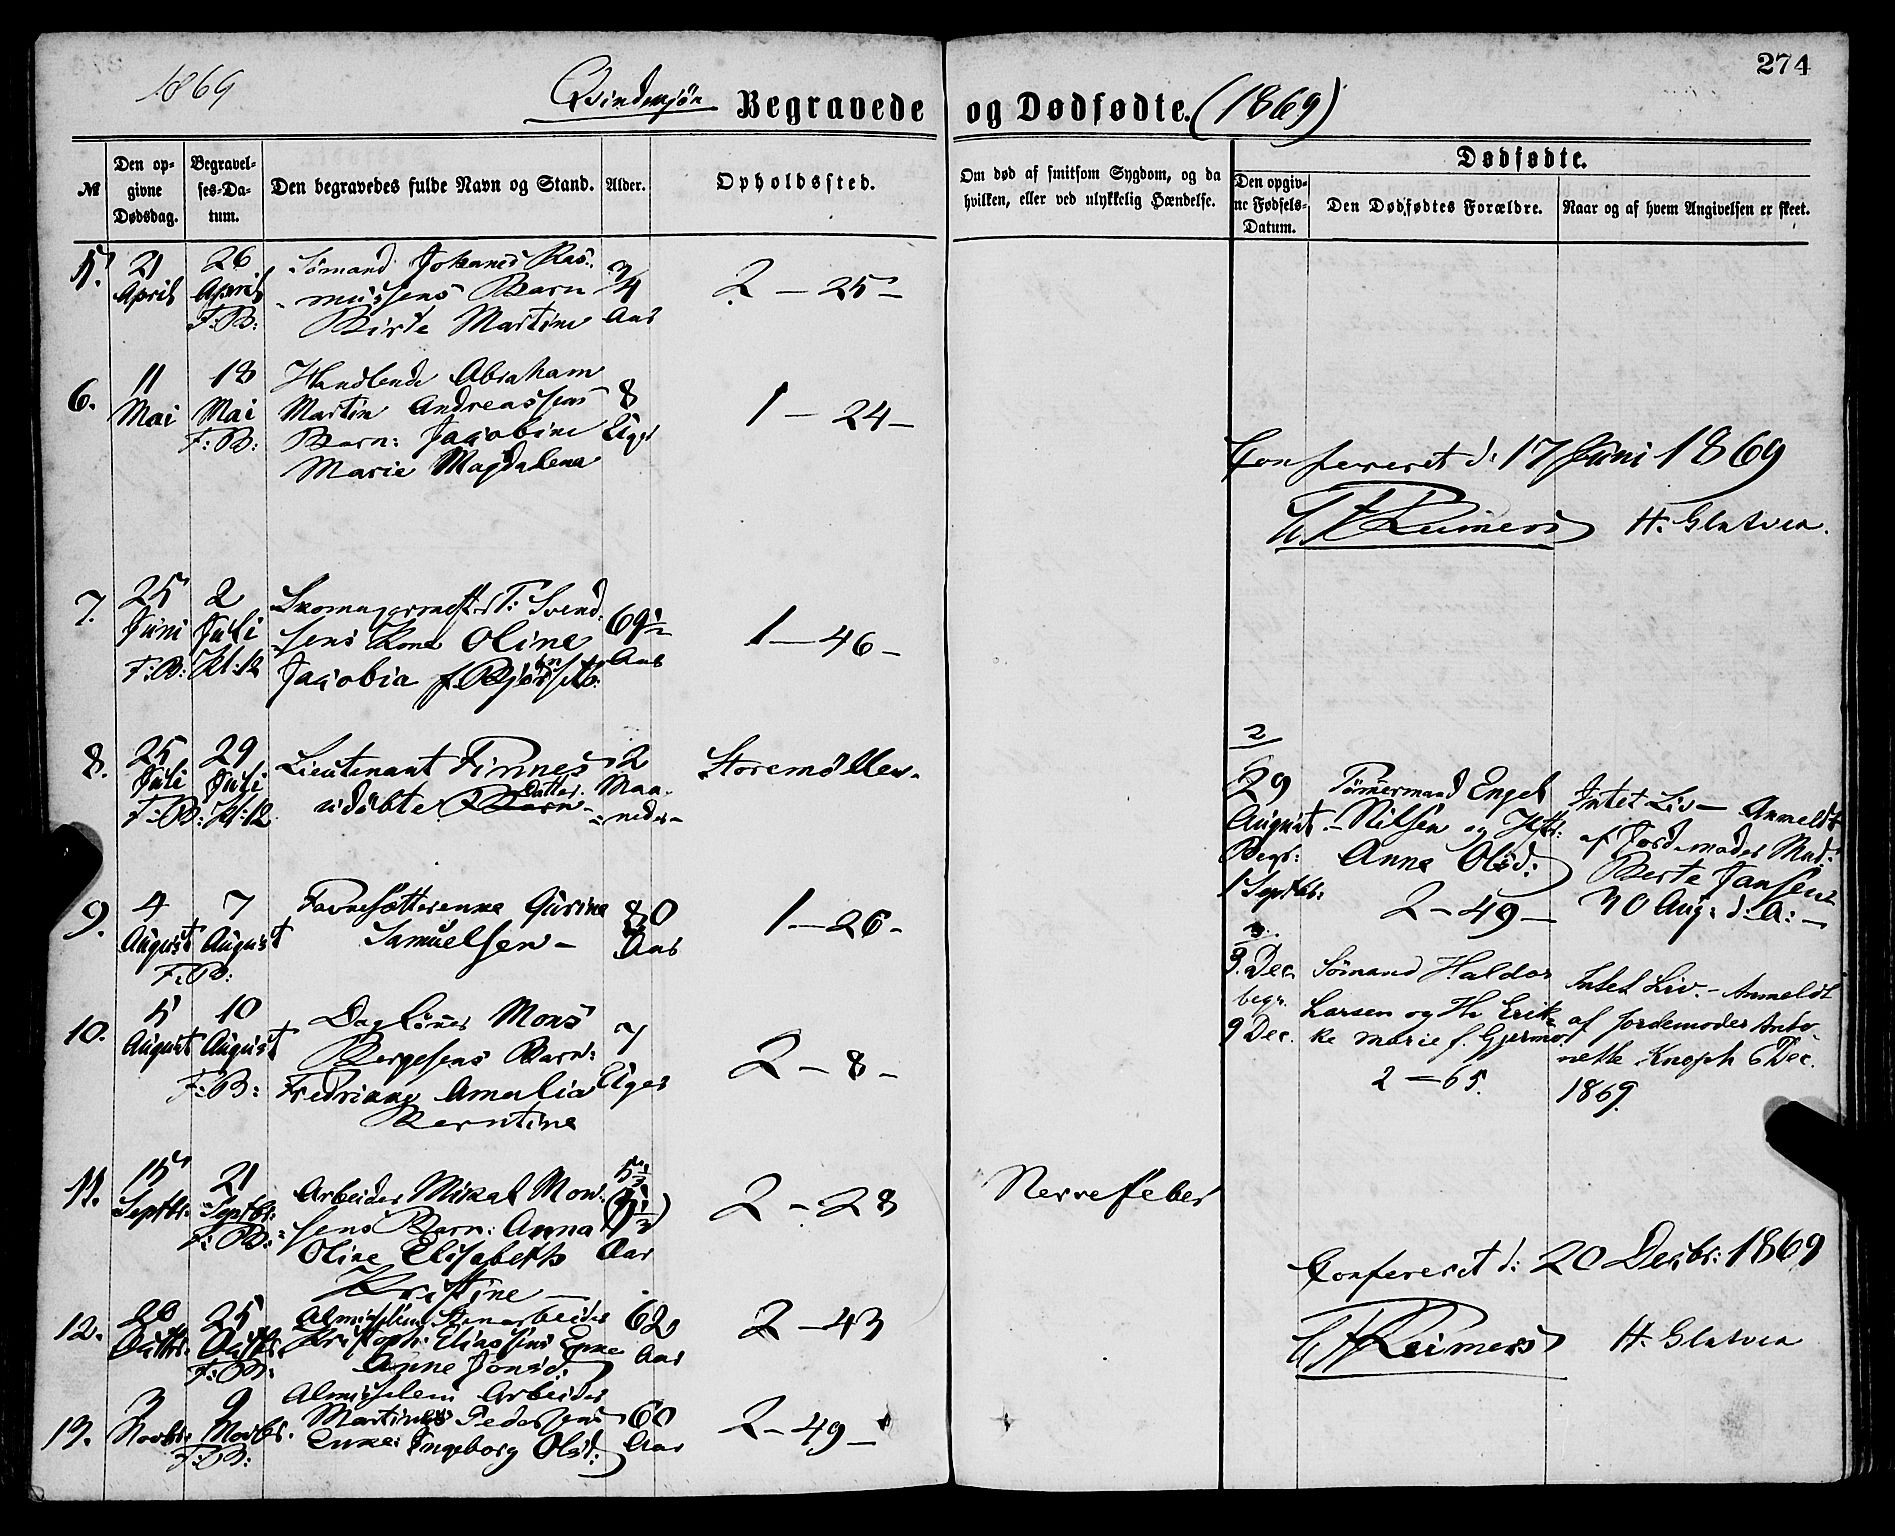 1869
Qvindekjøn
Begravede og Dødfødte. (1869)
274
№
Den opgivne Dødsdag.
Begravelses-Datum.
Den begravedes fulde Navn og Stand.
Alder.
Opholdssted.
Om død af smitsom Sygdom, og da
hvilken, eller ved ulykkelig Hændelse.
Dødfødte.
Den opgivne Fødsels-Datum.
Den Dødfødtes Forældre.
Naar og af hvem Angivelsen er skeet.
5. 21 April 26 April F:B:
Sømand Johanes Ras-
mussens Barn
Birte Martine
3/4 Aar
2 – 25 –
6. 11 Mai 18 Mai F:B:
Handlende Abraham
Martin Andreassens
Barn: Jacobine
Marie Magdalena
8 Uger
1 – 24 –
Confereret d: 17 Juni 1869
Reimers H. Slatvea.
7. 25 Juni F:B: 2 Juli Kl: 12
Skomagermester T: Svend-
sens Kone Oline
Jacobia f.
69 1/2 Aar
1 – 46 –
8. 25 Juli F:B: 29 Juli Kl: 12
Lieutenant Finnes
udøbte Barn Datter
2 Maa-
neder –
Storemøllen.
9. 4 August 7 August F:B:
Favnesætterenke Gurine
Samuelsen –
80 Aar
1 – 26 –
10. 5 August 10 August F:B:
Daglønner Mons
Bergesens Barn:
Fredrikke Amalia
Berntine
7 Uger
2 – 8 –
11. 15 Septbr: 21 Septbr: F:B:
Arbeider Mikal Mon-
sens Barn: Anna
Oline Elisabeth
Kristine –
5 1/2 (5 1/2) Aar
2 – 28
Nervefeber
12. 20 25 F:B:
Almisselem Stenarbeider
Kristoph: Eliassens Enke
Anne Jonsd:
62 Aar
2 – 43
13. 3 Novbr: 9 Novbr. F:B:
Almisselem Arbeider
Martinus Pedersens
Enke: Ingeborg Olsd:
60 Aar
2 – 49 –
2
29 August Begr: 1 Septbr:
Tømmermand Engel
Nilsen og Hstr:
Anne Olsd:
2 – 49 –
Intet Liv – Anmeldt
af Jordemoder Mad:
Berte Jansen
30 Aug: d: A: –
3.
3. Dec. begr. 9 Dec.
Sømand Haldor
Larsen og H. Erik-
ke Marie f. Gjermo
2 – 65.
Intet Liv. – Anmeldt
af Jordemoder Anto-
nette Knoph 6 Dec.
1869.
Confereret d: 20 Decbr: 1869
Reimers H. Slatvea